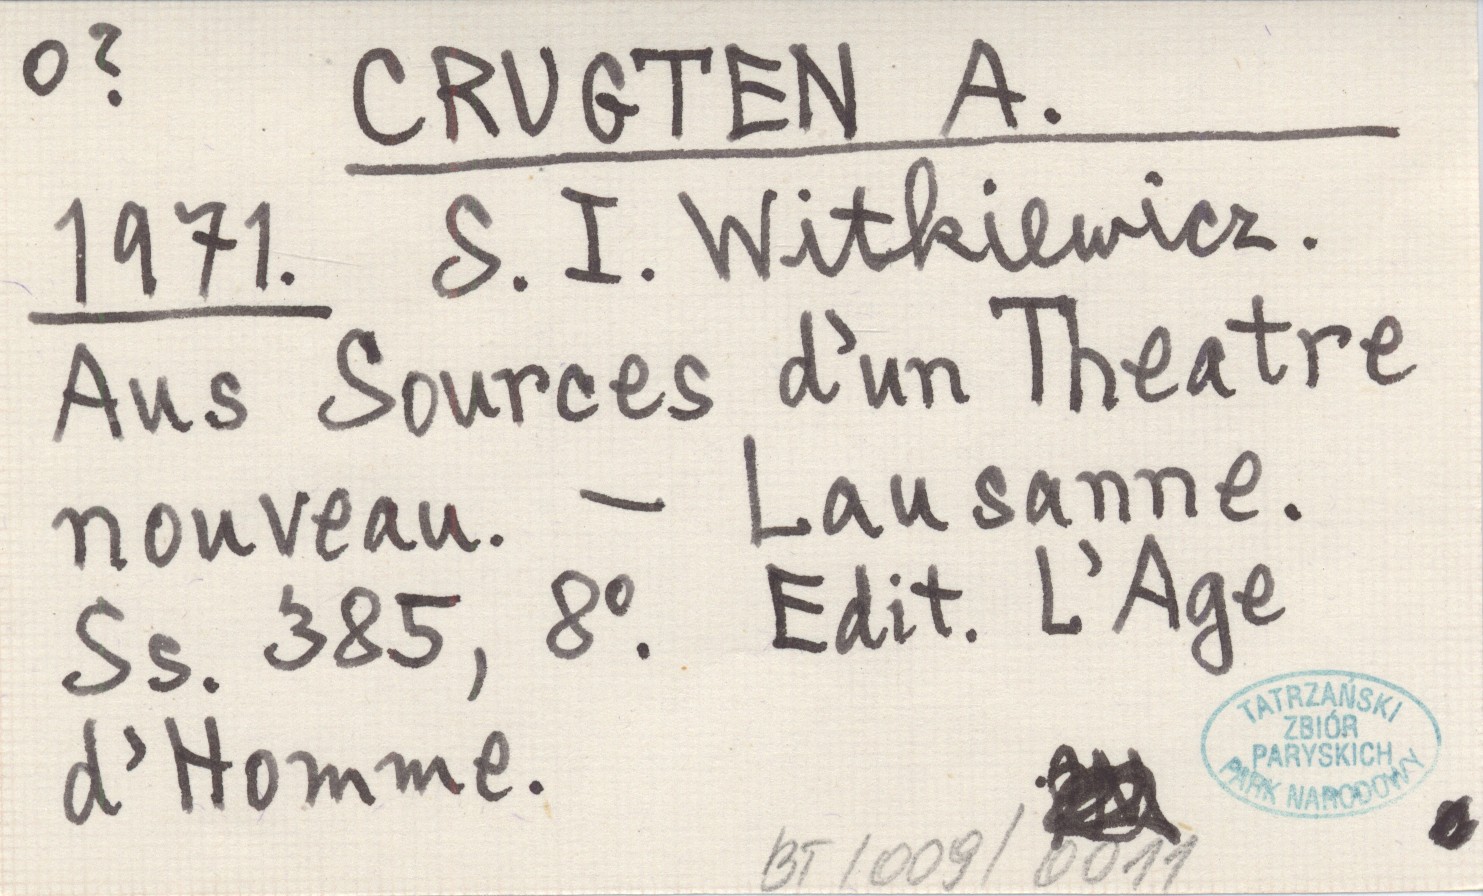 o?
CRUGTEN A.
1971. S. I. Witkiewicz.
Aus Sources d'un Theatre
nouveau. — Lausanne.
Ss. 385, 8º. Edit. L'Age
d'Homme.
TATRZAŃSKI
ZBIÓR
PARYSKICH
PARK NARODOWY
BT/009/0011